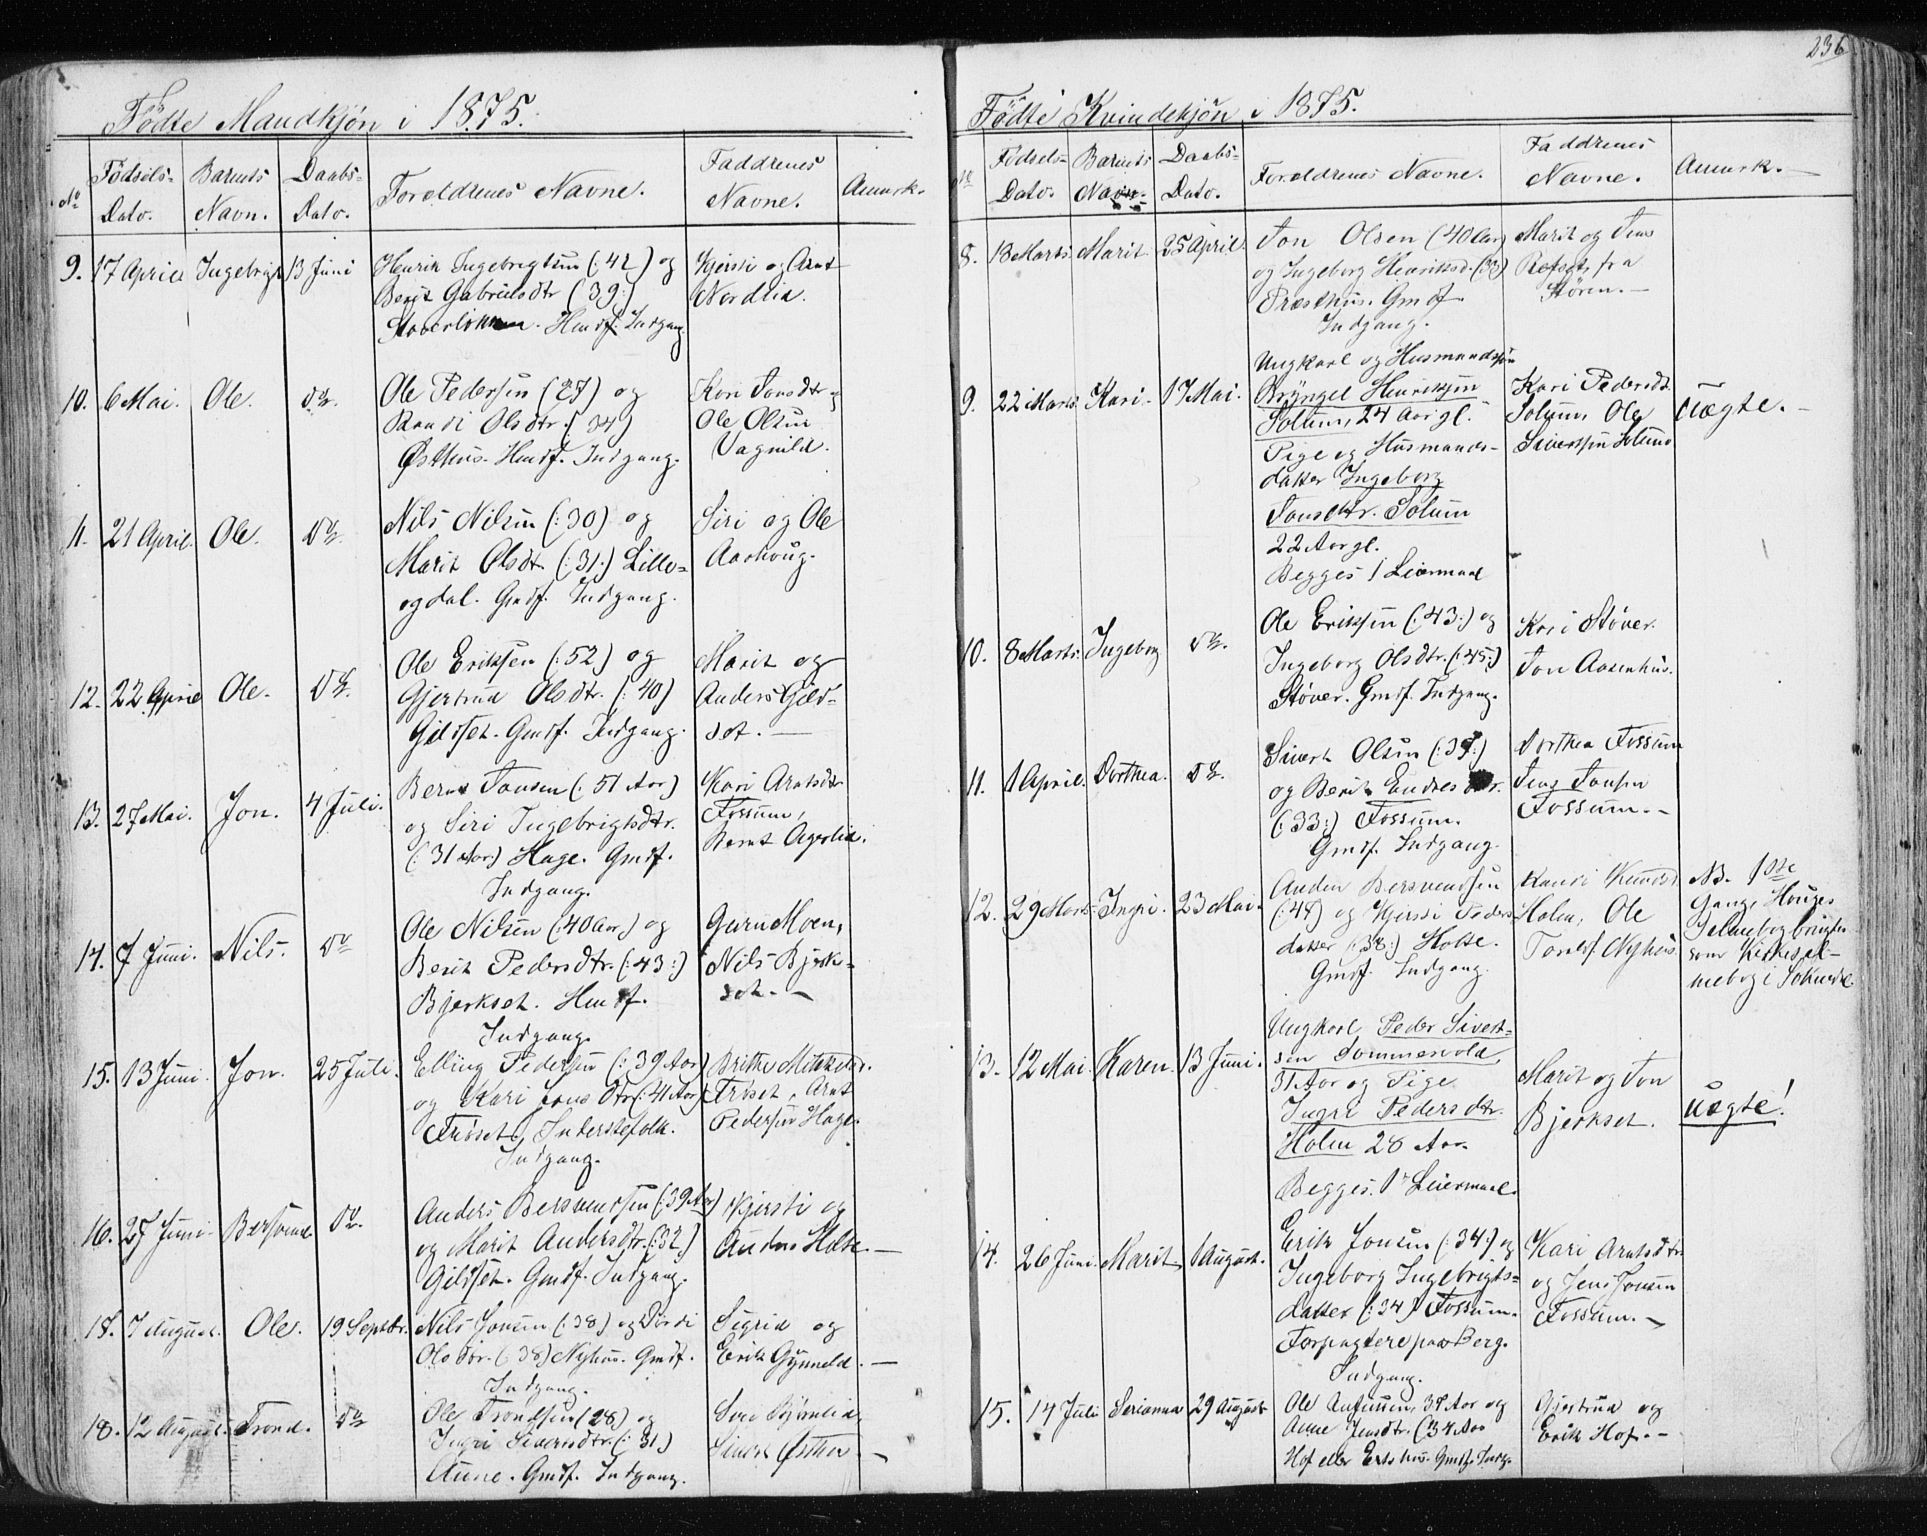 236
Fødte Mandkjøn i 1875.
No Fødsels- Dato. Barnets Navn. Daabs- Dato. Forældrenes Navne. Faddrenes Navne. Anmrk.
9. 17 April Ingebrigt 13 Juni Henrik Ingebrigtsen (: 42) og Kjersti og Arnt
Berit Gabrielsdtr (39:) Nordlia.
Hmdf. Indgang.
10. 6 Mai. Ole. do. Ole Pedersen (27) og Kari Jonsdtr og
Randi Olsdtr. (34) Ole Olsen
Østhus. Hmdf. Indgang. Vagnild.
11. 21 April. Ole. do. Nils Nilsen (: 30) og Siri og Ole
Marit Olsdtr. (: 31:) Lille- Aashoug.
ogdal. Gmdf. Indgang.
12. 22 April Ole. do. Ole Eriksen (: 52) og Marit og
Gjertrud Olsdtr. (: 40) Anders Gild-
Gildset. Gmdf. Indgang. set. —
13. 27 Mai. Jon. 4 Juli. Bernt Jonsen (: 51 Aar) Kari Arntsdtr
og Siri Ingebrigtsdtr. Fossum,
(: 31 Aar) Hage. Gmdf. Bernt Agerlia.
Indgang.
14. 7 Juni. Nils. do Ole Nilsen (: 40 Aar) og Guru Moen,
Berit Pedersdtr. (: 43 :) Nils Bjerk-
Bjerkset. Hmdf. set. —
Indgang.
15. 13 Juni. Jon. 25 Juli. Elling Pedersen (: 39 Aar) Brithe Mikkelsdtr.
og Kari Jonsdtr (: 41 Aar) Frøset, Arnt
Frøset, Inderstefolk. Pedersen Hage.
Indgang.
16. 27 Juni. Bersvend do. Anders Bersvendsen (: 39 Aar) Kjersti og
og Marit Andersdtr. (: 32.) Anders Holte. —
Gildset. Gmdf. Indgang.
18. 7 August. Ole. 19 Septbr. Nils Jonsen (: 38) og Dordi Sigrid og
Olsdtr. (: 38) Nyhus. Gmdf. Erik Gynneld. —
Indgang.
18. 12 August. Trond. do Ole Trondsen (28) og Siri Bjørnlia,
Ingri Sivertsdtr. (: 31.) Sivert Østhus. —
Aune. Gmdf. Indgang.
Fødte Kvindekjøn i 1875.
No Fødsels- Dato. Barnets Navn. Daabs- Dato. Forældrenes Navne. Faddrenes Navne. Anmrk. —
8. 18 Marts. Marit. 25 April. Jon Olsen (40 Aar) Marit og Jens
og Ingeborg Henriksd. (33) Refset, fra
Præsthus. Gmdf. Støren. —
Indgang.
9. 22 Marts. Kari. 17 Mai. Ungkarl og Husmandssøn
Brÿngel Henriksen Kari Pedersdt.
Solum, 24 Aar gl. Solum, Ole Uægte. —
Pige og Husmands- Sivertsen Solum
datter Ingeborg
Jonsdtr. Solum
22 Aar gl.
Begges 1 Leiermaal
10. 8 Marts. Ingeborg do. Ole Eriksen (: 43:) og Kari Støver.
Ingeborg Olsdtr. (: 45:) Jon Aasenhus.
Støver. Gmdf. Indgang.
11. 1 April. Dorthea. do. Sivert Olsen (: 37:) Dorthea Fossum
og Berit Endresdtr. Jens Jonsen
(: 33:) Fossum. Fossum. —
Gmdf. Indgang.
12. 29 Marts. Ingri. 23 Mai. Anders Bersvendsen Randi Knudsd. NB. 1ste
(: 47) og Kjersti Peders- Holm, Ole Gang Houges
datter (: 38:) Holte. Tondsf. Nyhus. Salmebog brugtes
Gmdf. Indgang. som Kirkesal-
mebog i Soknedal.
13. 12 Mai. Karen. 13 Juni. Ungkarl Peder Sivert-
sen Sommervold,
31 Aar og Pige Marit og Jon
Ingri Pedersdtr. Bjerkset. Uægte!
Holm 28 Aar.
Begges 1ste Leiermaal.
14. 26 Juni. Marit 1 August. Erik Jonsen (: 34:) og Kari Arntsdtr.
Ingeborg Ingebrigts- og Jens Jonsen
datter (: 34) Fossum. Fossum. —
Forpagtere paa Berg.
Indgang.
15. 14 Juli Serianna 29 August Ole Anfinsen, 37 Aar og Gjertrud og
Anne Jensdtr. (34 Aar Erik Hof. —
Hof eller Ertshus. Gmdf. Indg.